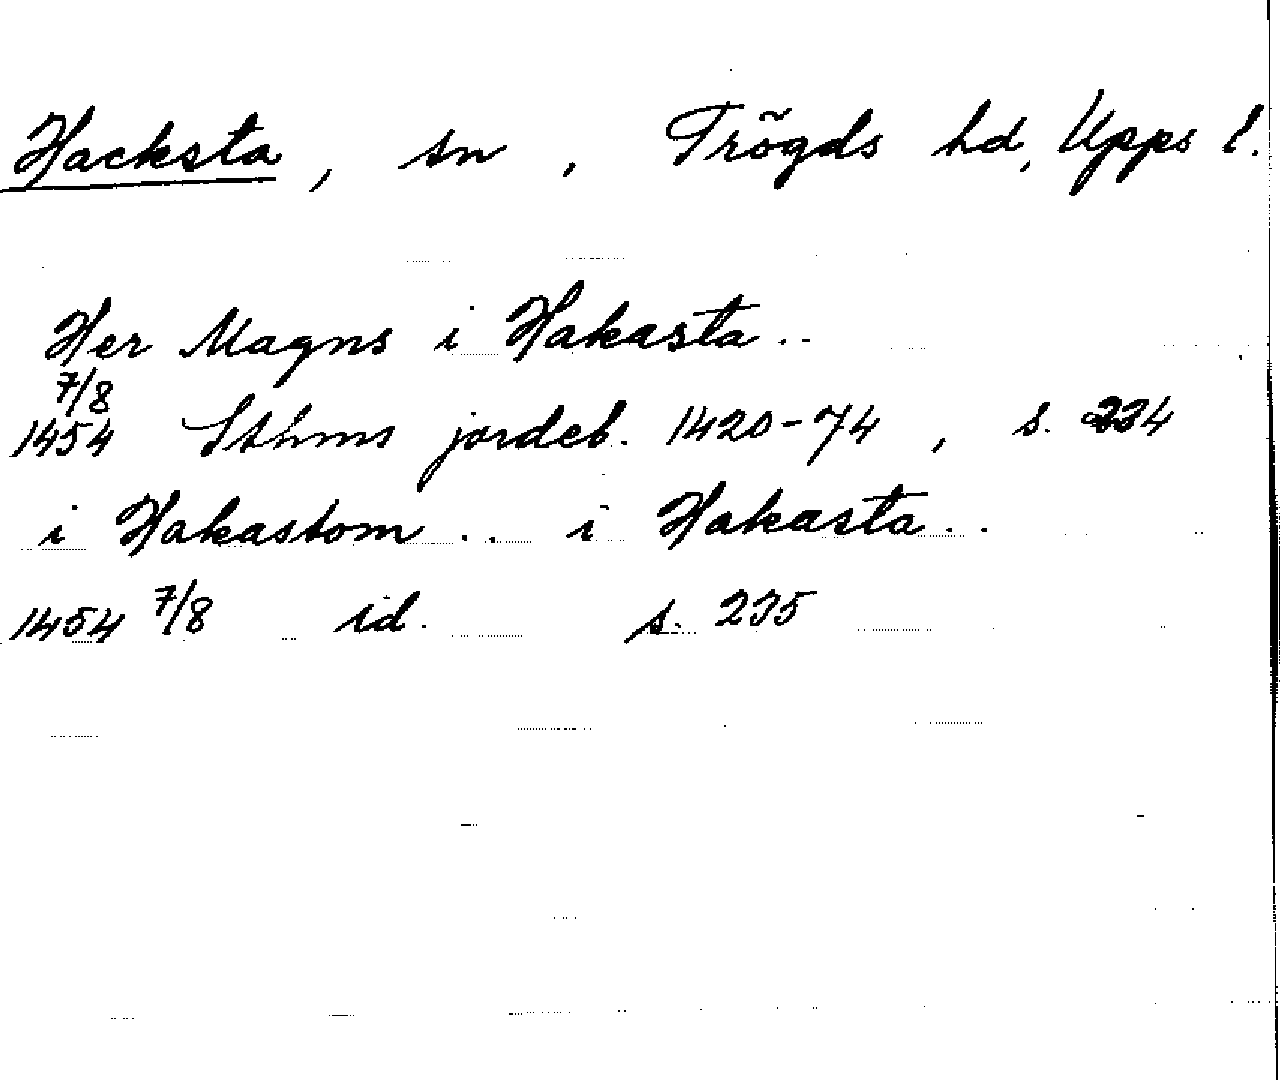 Hacksta, sn, Trögds hd, Upps l.
Her Magns i Hakasta..
7/8
1454 Sthms jordeb. 1420-74, s. 234
i Hakastom.. i Hakasta..
1454 7/8 id. s. 235